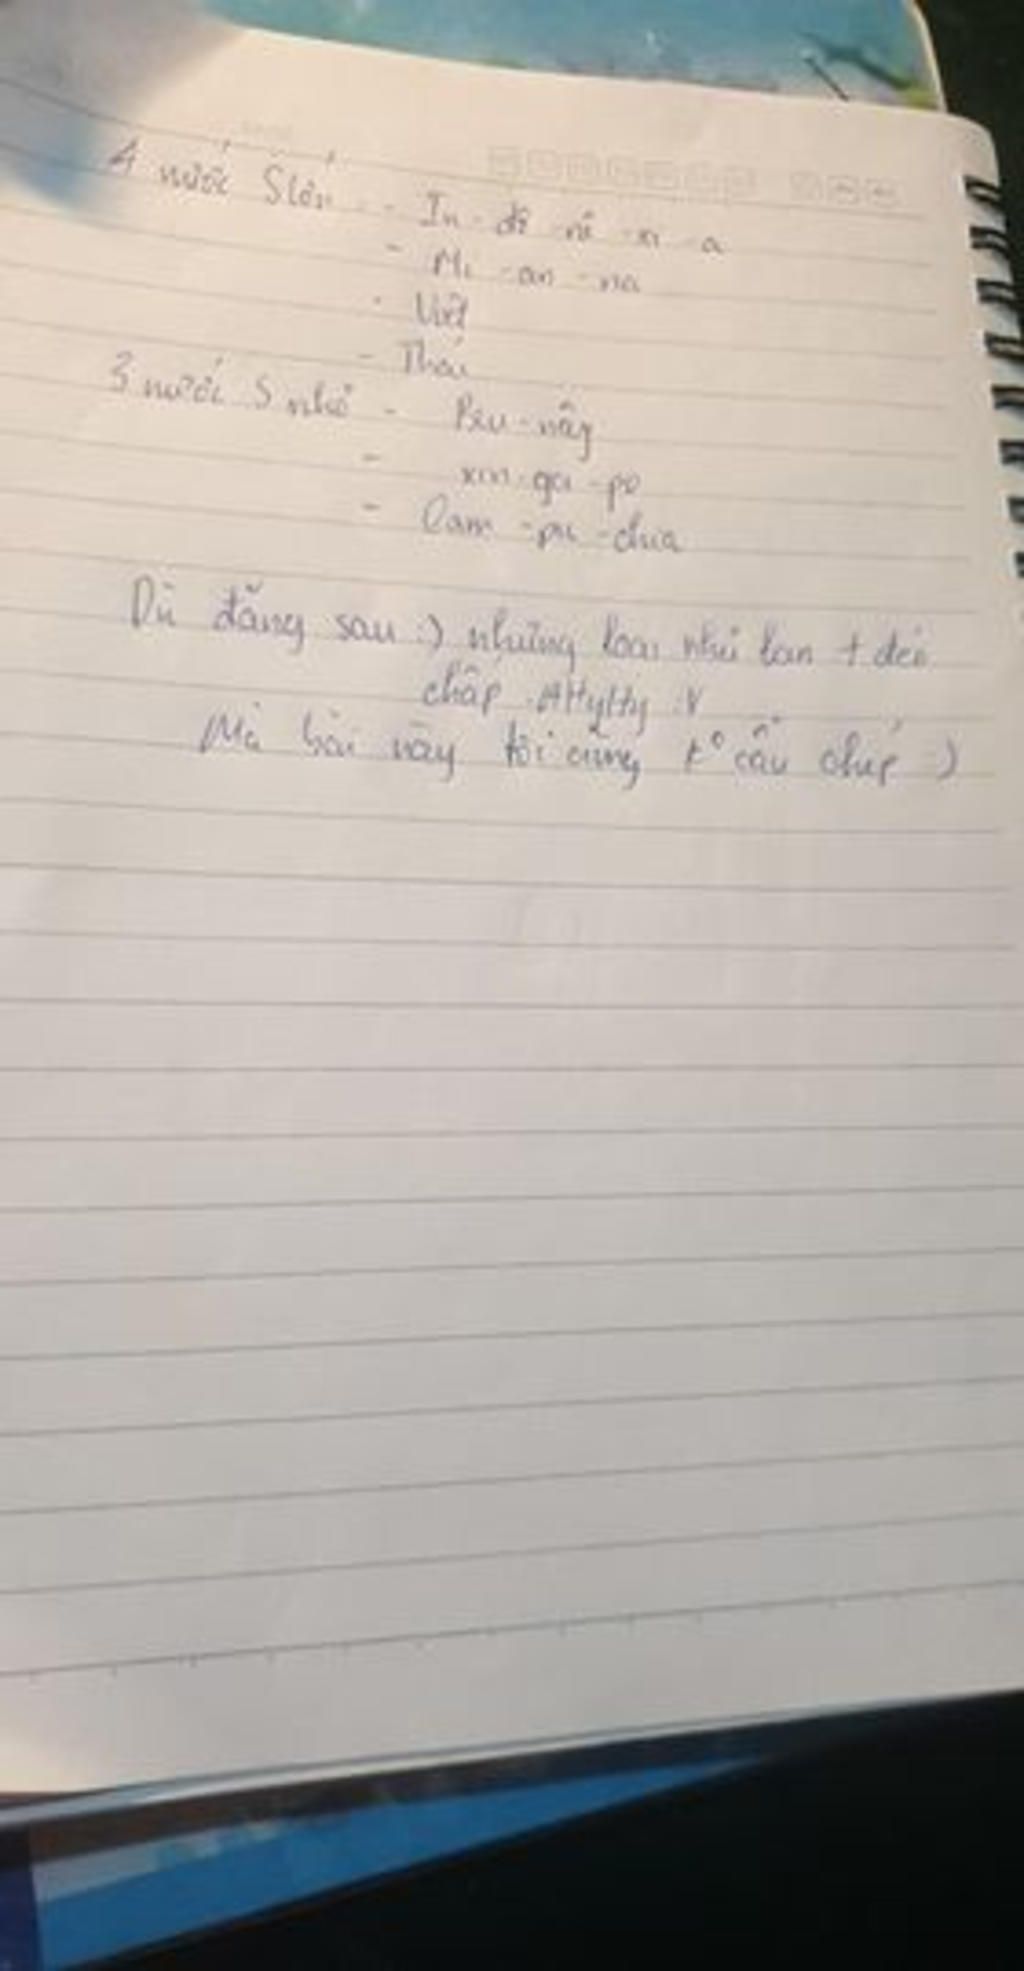 4 nước S lớn - In - đô - nê - xi - a
- Mi - an - ma
- Việt
- Thái
3 nước S nhỏ - Bru - nây
- xin - ga - po
- Cam - pu - chia
Dù đằng sau :) những loại như bạn t đéo
chấp .AHyHy :V
Mà bài này tôi cũng t° cầu chép :)